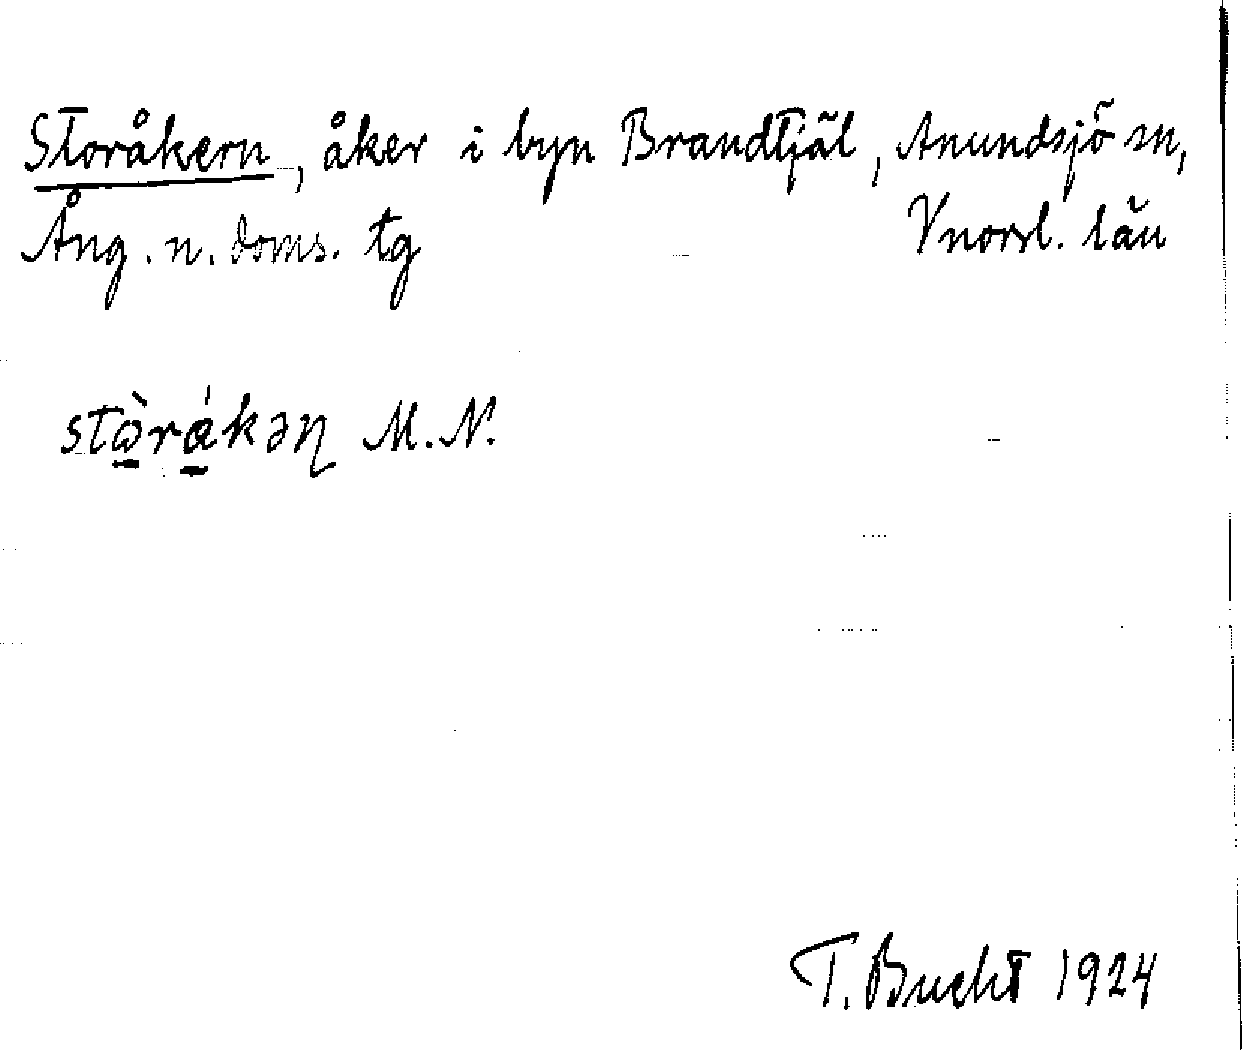 Storåkern, åker i byn Brandtjäl, Anundsjö sn,
Ång. n. doms. tg Vnorrl. län
stὼ̠rά̠kəɳ M.N.
T. Bucht 1924